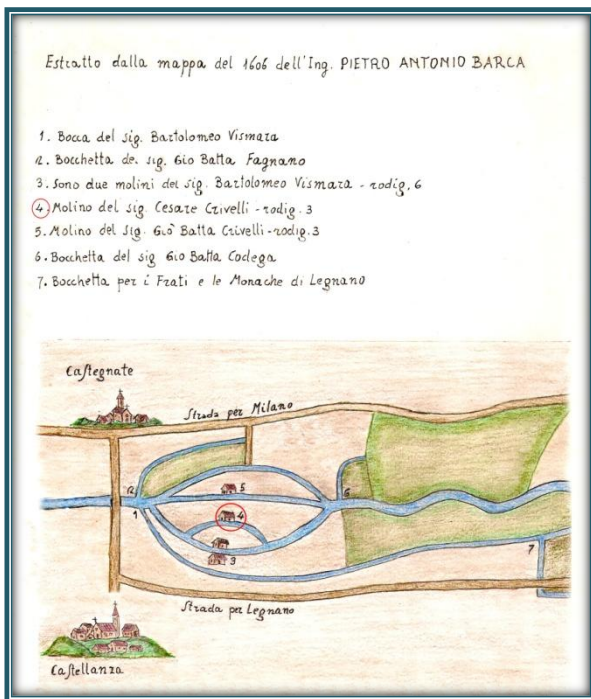 Estratto dalla mappa del 1606 dell'Ing. PIETRO ANTONIO BARCA
1. Bocca del sig. Bartolomeo Vismara
2. Bocchetta del sig. Gio Batta Fagnano
3. Sono due molini del sig. Bartolomeo Vismara - rodig. 6
4. Molino del sig. Cesare Crivelli - rodig. 3
5. Molino del sig. Giò Batta Crivelli - rodig. 3
6. Bocchetta del sig Gio Batta Codega
7. Bocchetta per i Frati e le Monache di Legnano
Castegnate
Strada per Milano
2
5
6
1
4
3
7
Strada per Legnano
Castellanza